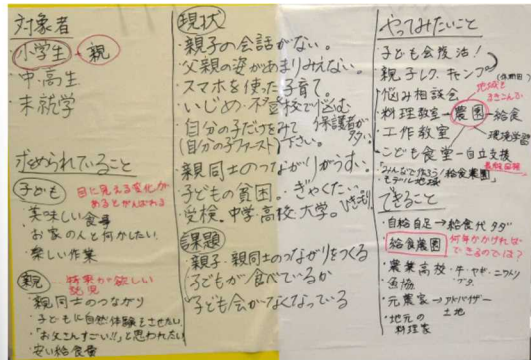 対象者
小学生→親
・中・高生
・未就学
求められていること
子ども
目に見える変化が
あるとやんばれる
・美味しい食事
・お家の人と何かしたい
・楽しい作業
親
将来が欲しい
・親同士のつながり
・子どもに自然体験をさせたい
・「お父さんすごい!!」と思われたい
・安い給食費
現状
・親子の会話がない。
・父親の姿があまりみえない。
・スマホを使った子育て。
・いじめ・不登校で悩む
保護者が多い。
・自分の子だけをみて下さい。
(自分の子ファースト)
・親同士のつながりがうすい。
・子どもの貧困。ぎゃくたい。
・学校、中学、高校、大学。
課題
・親子・親同士のつながりをつくる
・子どもが食べているか
・子ども会がなくなっている
やってみたいこと
・子ども会復活!
・親子レク、キャンプ
・悩み相談会
地域も
まきこんで
・料理教室→農園→給食
・工作教室
環境学習
・こども食堂→自立支援
「みんなで作ろう!給食農園」
モデル地域
できること
・自給自足→給食代タダ
給食農園
何年かければ
できるのでは?
・農業高校・牛・ヤギ・ニワトリ
ブタ
・漁協
・元農家→アドバイザー
土地
・地元の
料理家